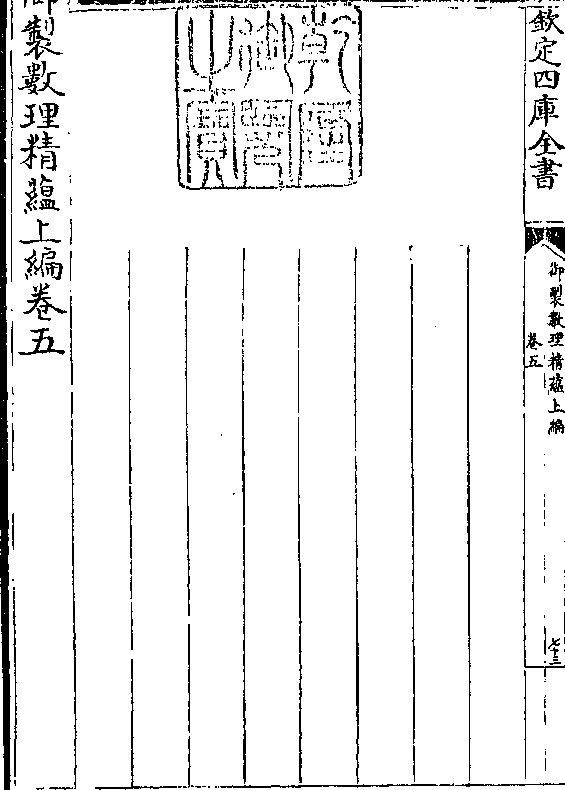 欽定四庫全書
御製數理精蘊上編
卷五
七十三
乾隆御覽之寶
御製數理精蘊上編卷五